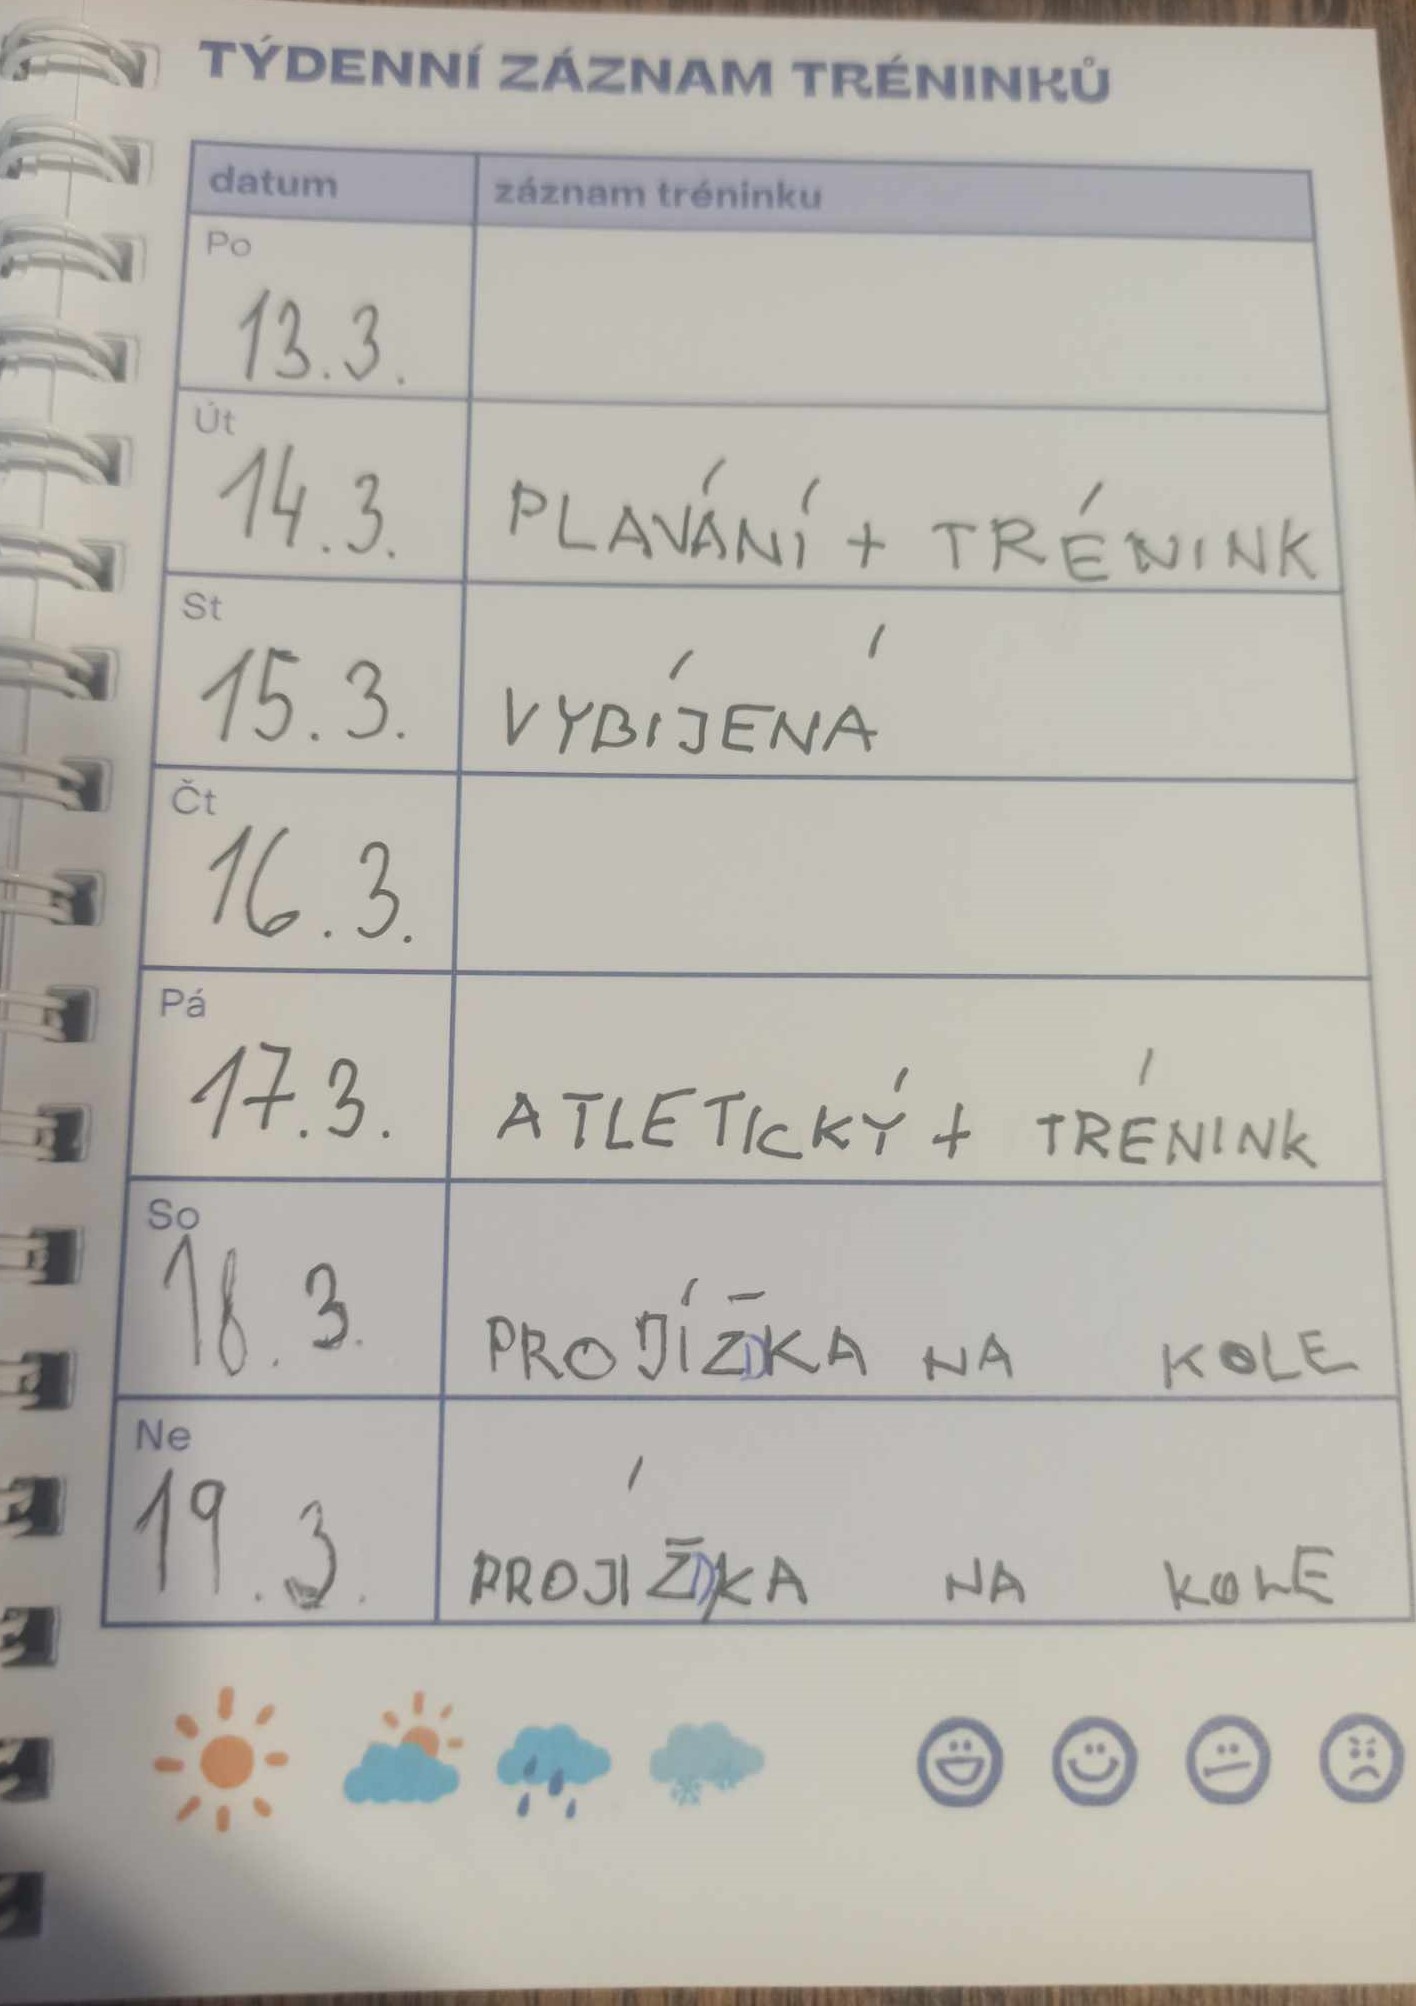 TÝDENNÍ ZÁZNAM TRÉNINKŮ
datum záznam tréninku
Po
13.3.
Út
14.3. PLAVÁNÍ + TRÉNINK
St
15.3. VYBÍJENÁ
Čt
16.3.
Pá
17.3. ATLETICKÝ + TRÉNINK
So
18.3. PROJÍŽDKA NA KOLE
Ne
19.3. PROJÍŽDKA NA KOLE